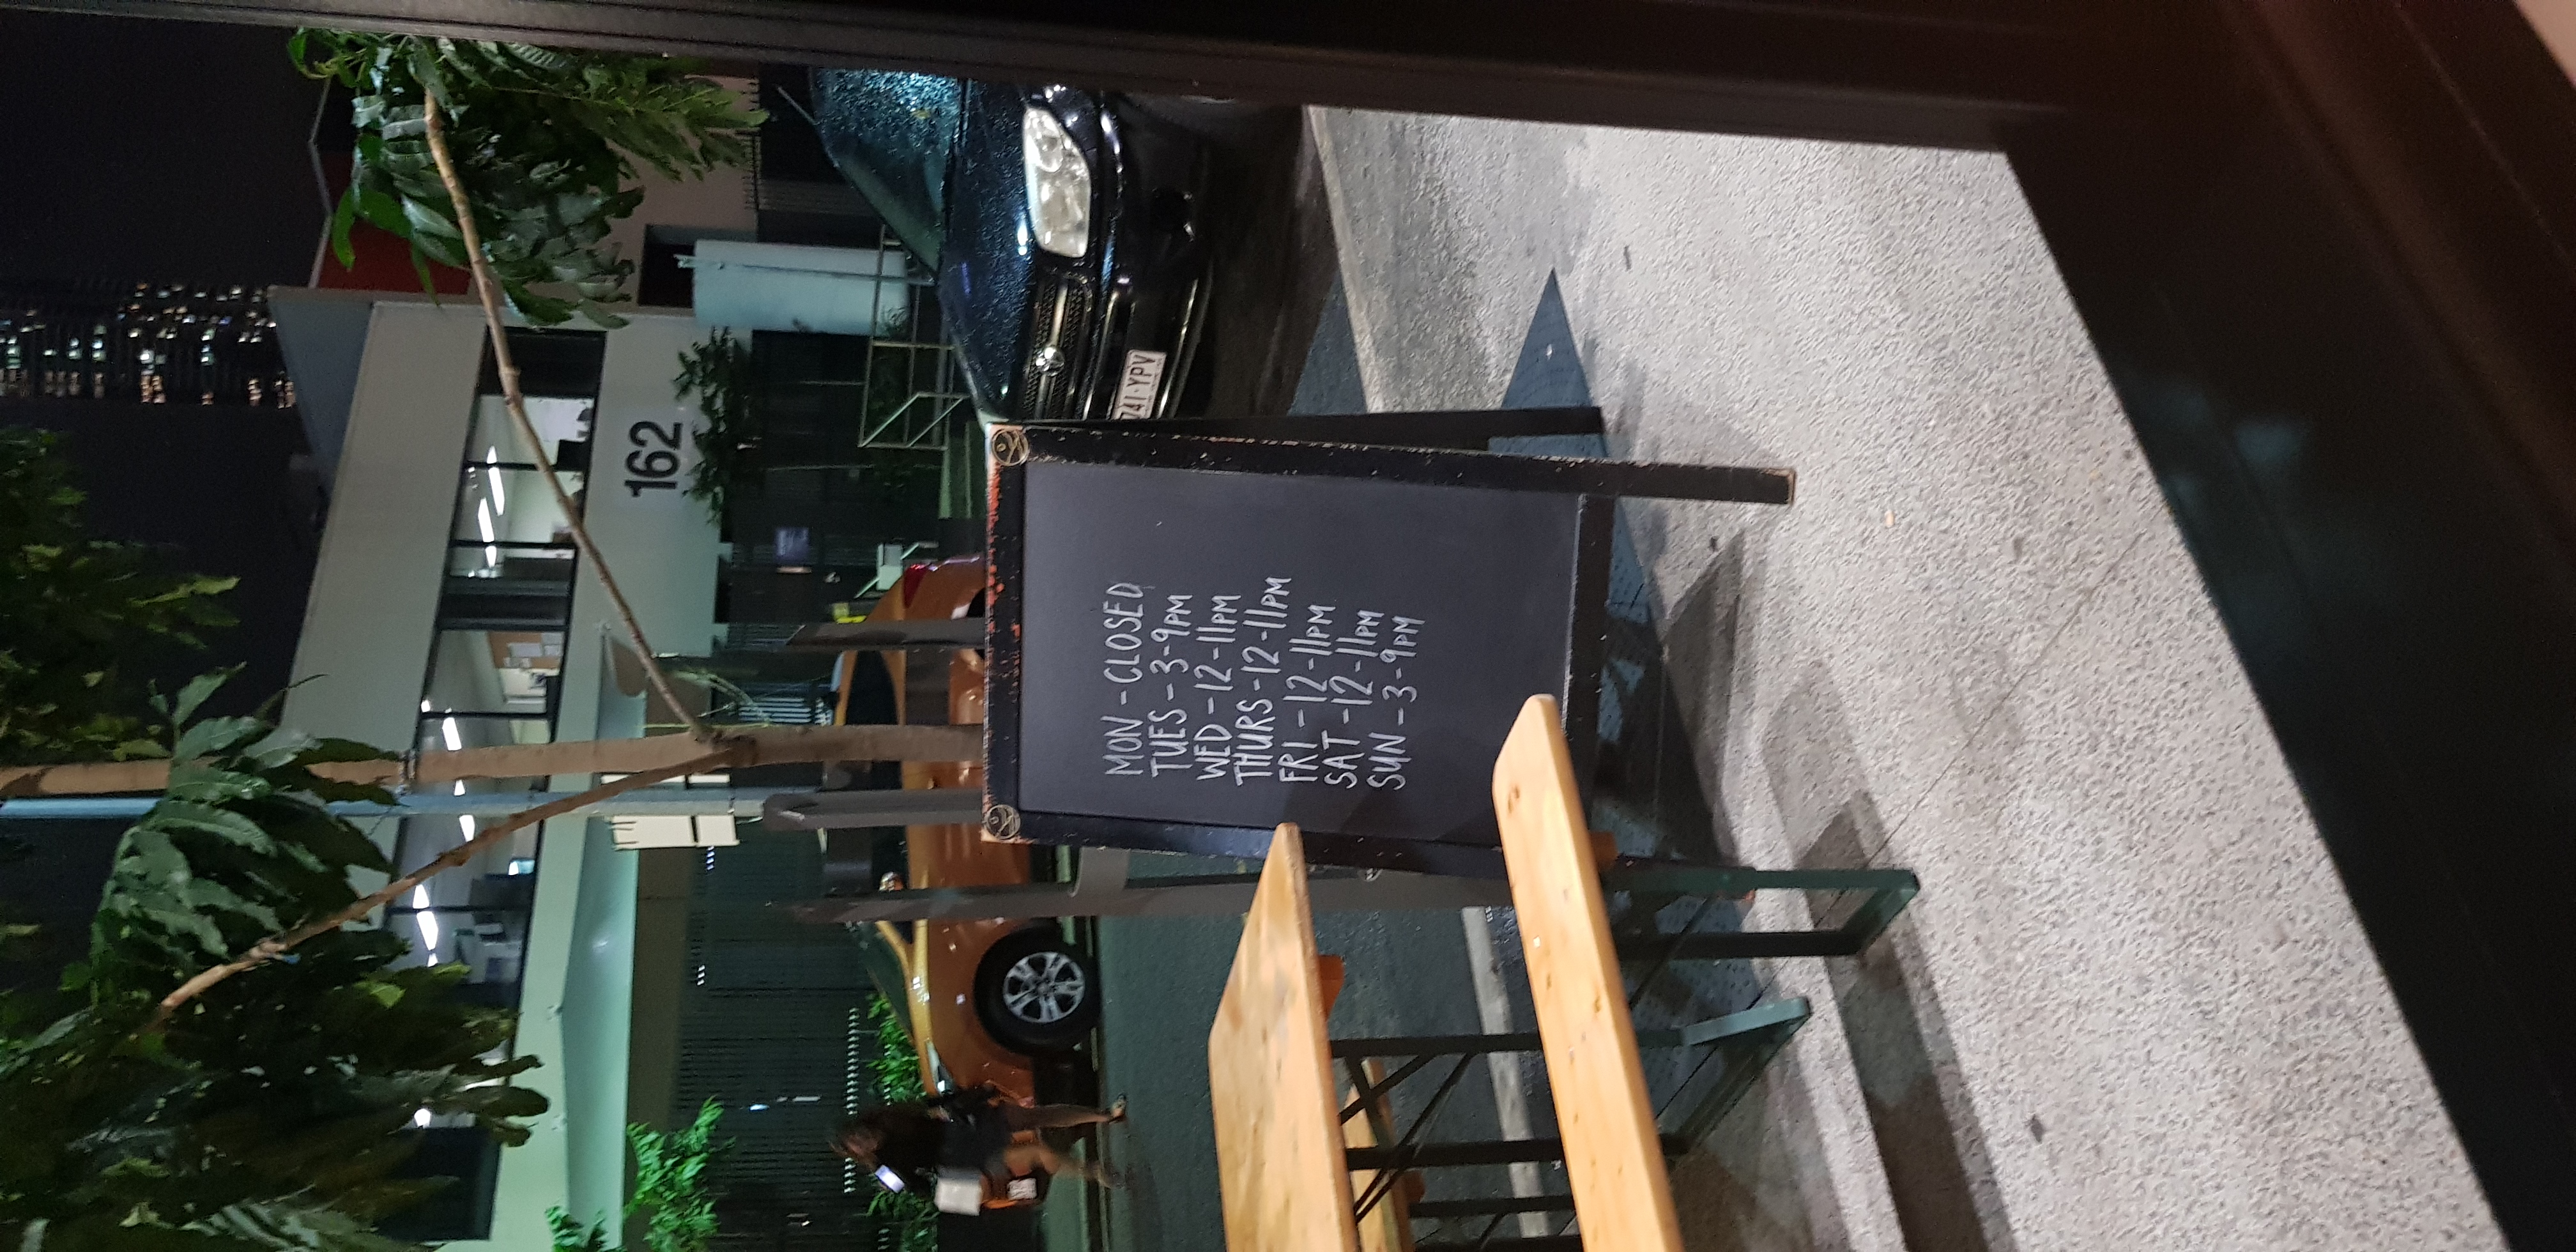 162
MON - CLOSED
TUES - 3-9PM
WED - 12-11PM
THURS - 12-11PM
FRI - 12-11PM
SAT - 12-11PM
SUN - 3-9PM
741·YPV